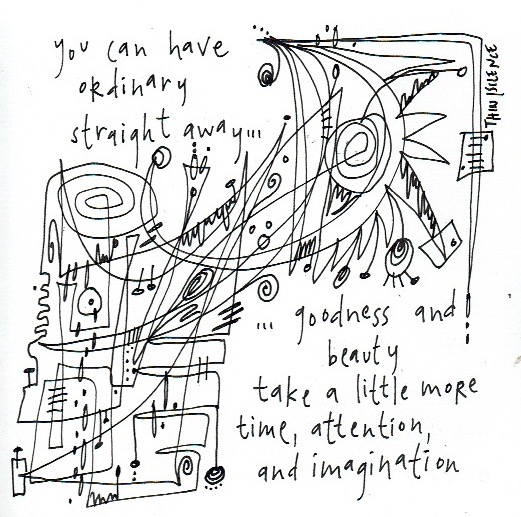 you can have
ordinary
straight away...
THIN|SILENCE
... goodness and
beauty
take a little more
time, attention,
and imagination